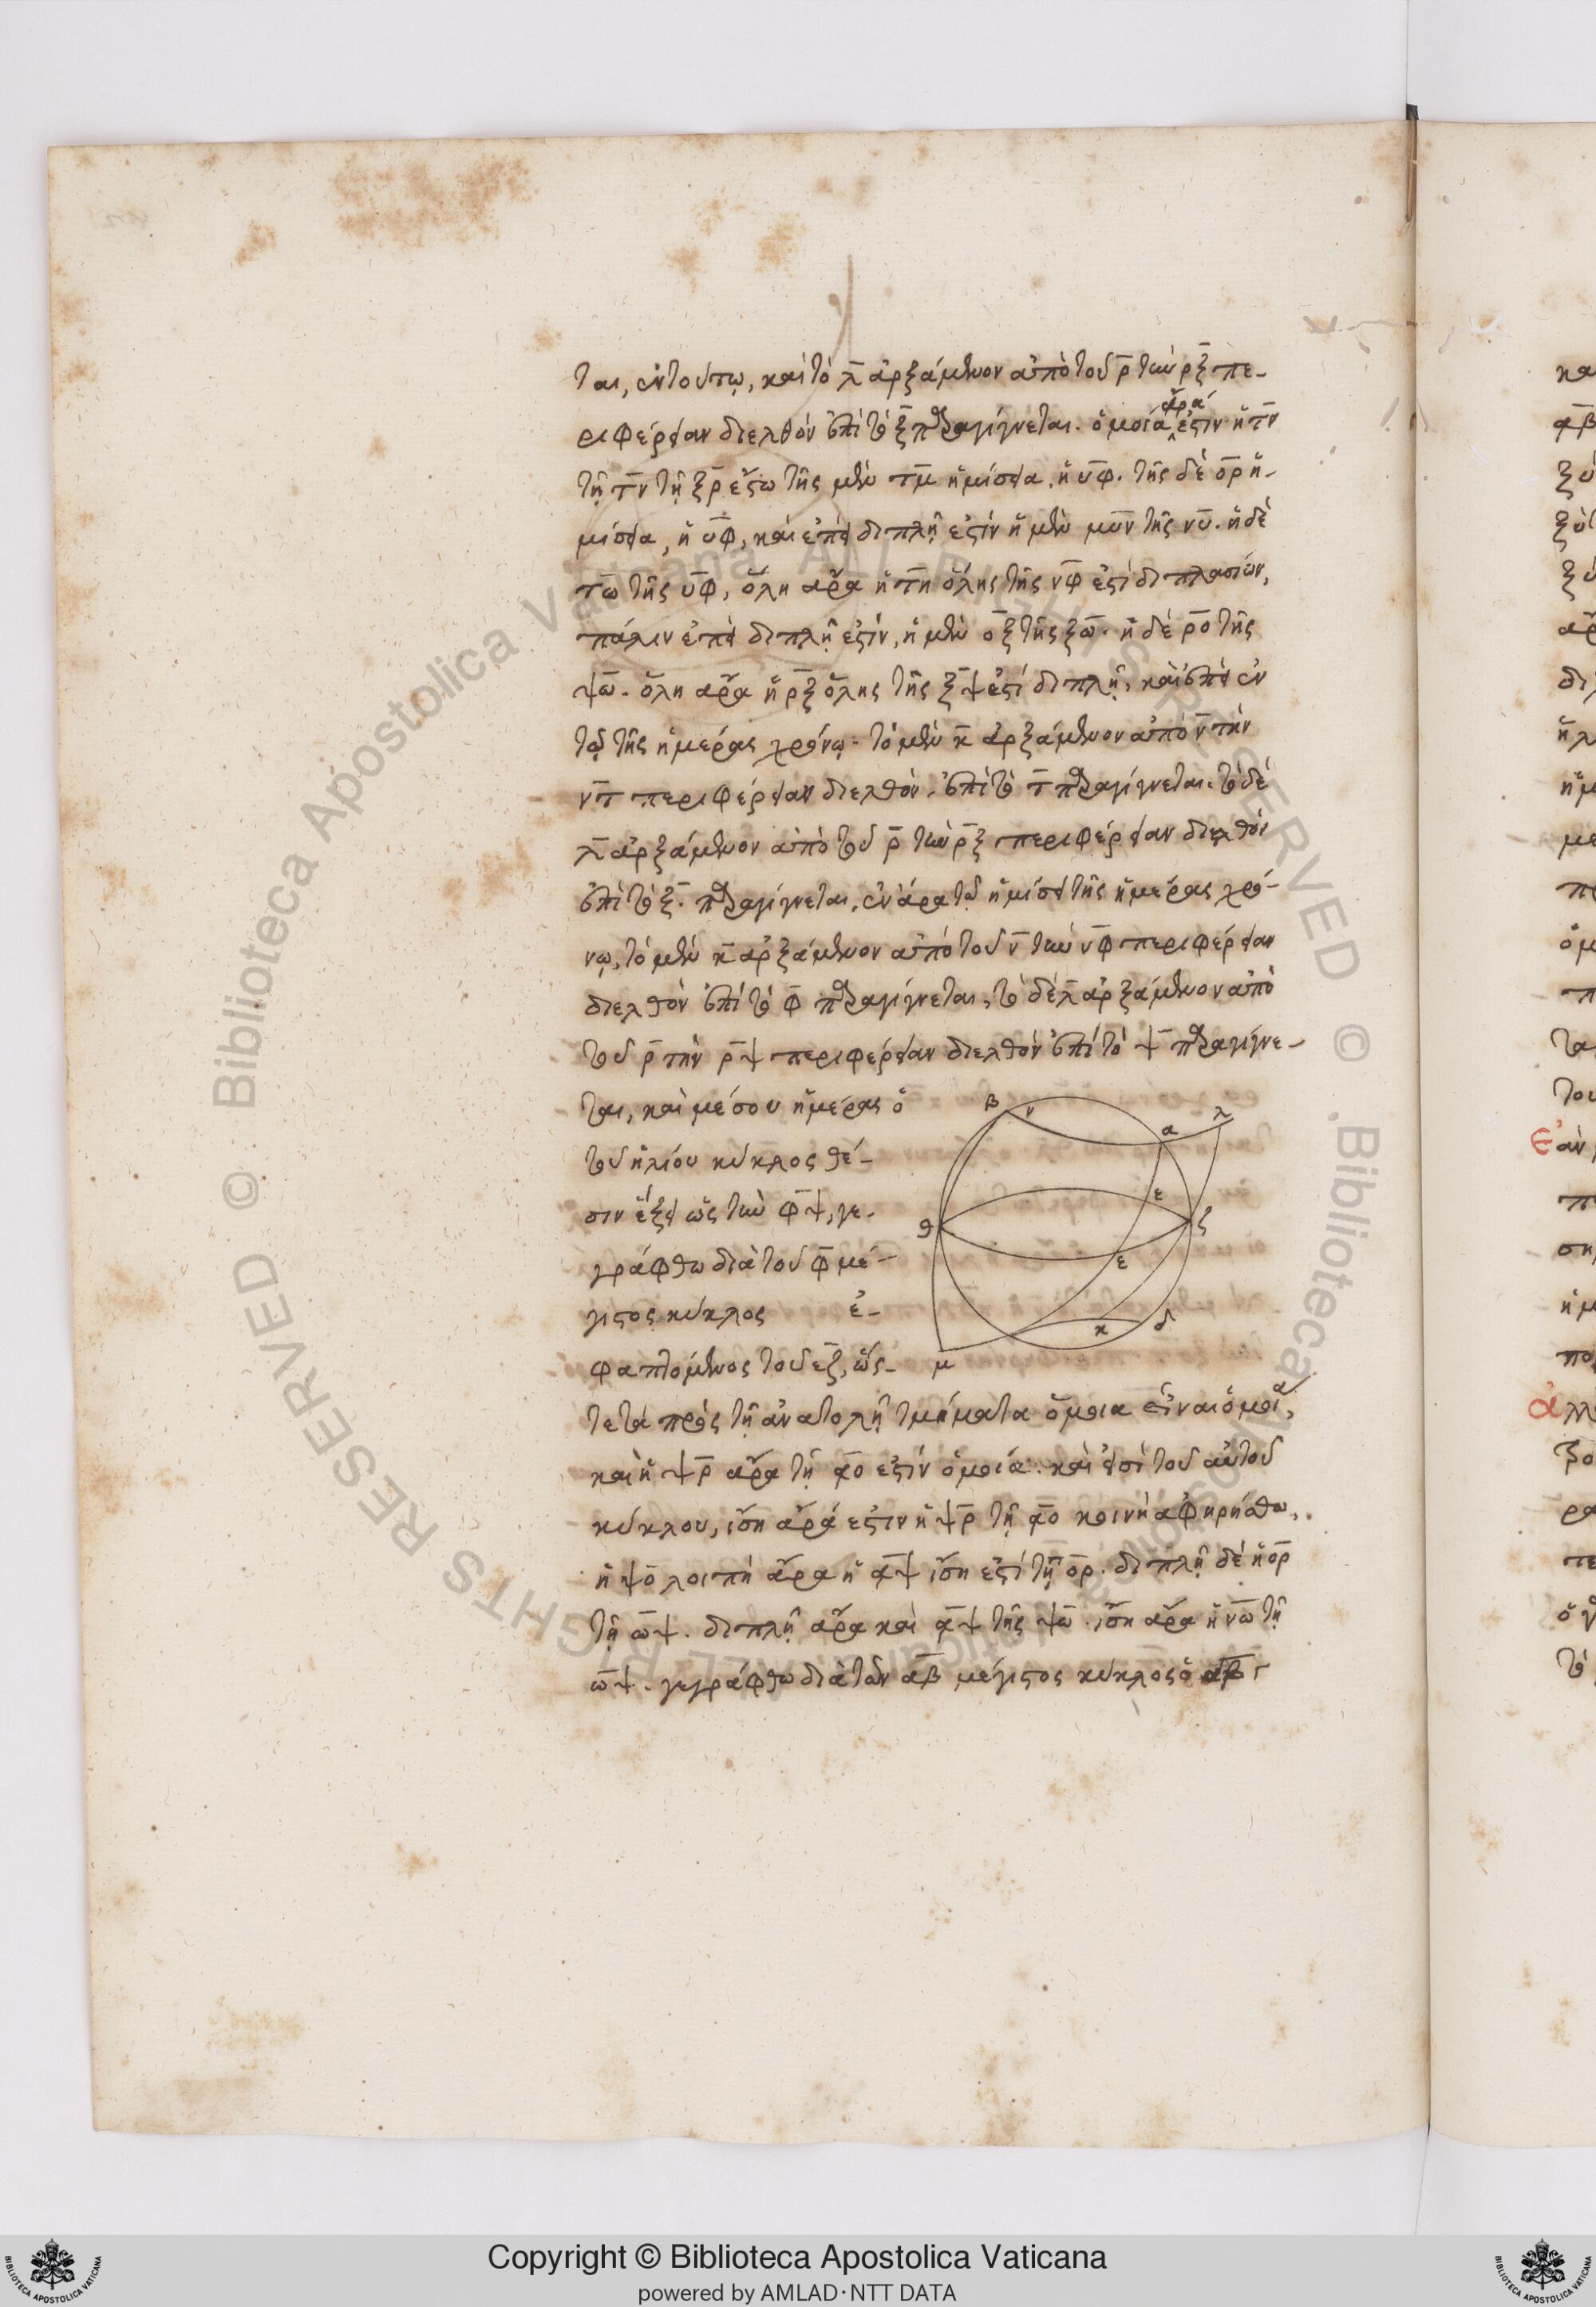 ται, ἐν τούτῳ, καὶ τὸ λ̅ ἀρξάμενον ἀπὸ τοῦ ρ̅ τὴν ρ̅ξ̅ πε-
ριφέρειαν διελθὸν ἐπὶ τὸ ξ̅ παραγίγνεται. ὁμοία ἄρα ἐστὶν ἡ τ̅ν̅
τῇ τ̅ν̅ τῇ ξ̅ρ̅ ἔξω τῆς μὲν τ̅μ̅ ἡμίσεια, ἡ υ̅φ̅. τῆς δὲ ο̅ρ̅ ἡ-
μίσεια, ἡ υ̅φ̅, καὶ ἐπεὶ διπλῆ ἐστὶν ἡ μὲν μ̅υ̅ν̅ τῆς ν̅υ̅. ἡ δὲ
τ̅ω̅ τῆς υ̅φ̅, ὅλη ἄρα ἡ τ̅η̅ ὅλης τῆς ν̅φ̅ ἐστὶ διπλασιών,
πάλιν ἐπεὶ διπλῆ ἐστίν, ἡ μὲν ο̅ξ̅ τῆς ξ̅ω̅. ἡ δὲ ρ̅ο̅ τῆς
ψ̅ω̅. ὅλη ἄρα ἡ ρ̅ξ̅ ὅλης τῆς ξ̅ψ̅ ἐστὶ διπλῆ, καὶ ἐπεὶ ἐν
τῷ τῆς ἡμέρας χρόνῳ. τὸ μὲν κ̅ ἀρξάμενον ἀπὸ ν̅ τὴν
ν̅τ̅ περιφέρειαν διελθὸν, ἐπὶ τὸ τ̅ παραγίγνεται. τὸ δὲ
λ̅ ἀρξάμενον ἀπὸ τοῦ ρ̅ τὴν ρ̅ξ̅ περιφέρειαν διελθὸν
ἐπὶ τὸ ξ̅. παραγίγνεται. ἐν ἄρα τῷ ἡμίσει τῆς ἡμέρας χρό-
νῳ, τὸ μὲν κ̅ ἀρξάμενον ἀπὸ τοῦ ν̅ τὴν ν̅φ̅ περιφέρειαν
διελθὸν ἐπὶ τὸ φ̅ παραγίγνεται, τὸ δὲ λ̅ ἀρξάμενον ἀπὸ
τοῦ ρ̅ τὴν ρ̅ψ̅ περιφέρειαν διελθὸν ἐπὶ τὸ ψ̅ παραγίγνε-
ται, καὶ μέσου ἡμέρας ὁ
τοῦ ἡλίου κύκλος θέ-
σιν ἕξει ὡς τὴν φ̅ψ̅, γε-
γράφθω διὰ τοῦ φ̅ μέ-
γιστος κύκλος ἐ-
φαπτόμενος τοῦ ε̅ζ̅, ὥς-
β ν α λ
ε
θ ζ
ε
κ δ
μ
τε τὰ πρὸς τῇ ἀνατολῇ τμήματα ὅμοια εἶναι ὁμοία,
καὶ ἡ ψ̅ρ̅ ἄρα τῇ φ̅ο̅ ἐστὶν ὁμοία. καὶ εἰσὶ τοῦ αὐτοῦ
κύκλου, ἴση ἄρα ἐστιν ἡ ψ̅ρ̅ τῇ φ̅ο̅ κοινὴ ἀφηρήσθω,
ἡ ψ̅ο̅ λοιπὴ ἄρα ἡ φ̅ψ̅ ἴση ἐστὶ τῇ ο̅ρ̅. διπλῆ δὲ ἡ ο̅ρ̅
τῇ ω̅ψ̅. διπλῆ ἄρα καὶ φ̅ψ̅ τῆς ψ̅ω̅. ἴση ἄρα ἡ ν̅ω̅ τῇ
ω̅ψ̅. γεγράφθω διὰ τῶν α̅β̅ μέγιστος κύκλος ὁ α̅β̅γ
Copyright © Biblioteca Apostolica Vaticana
powered by AMLAD·NTT DATA